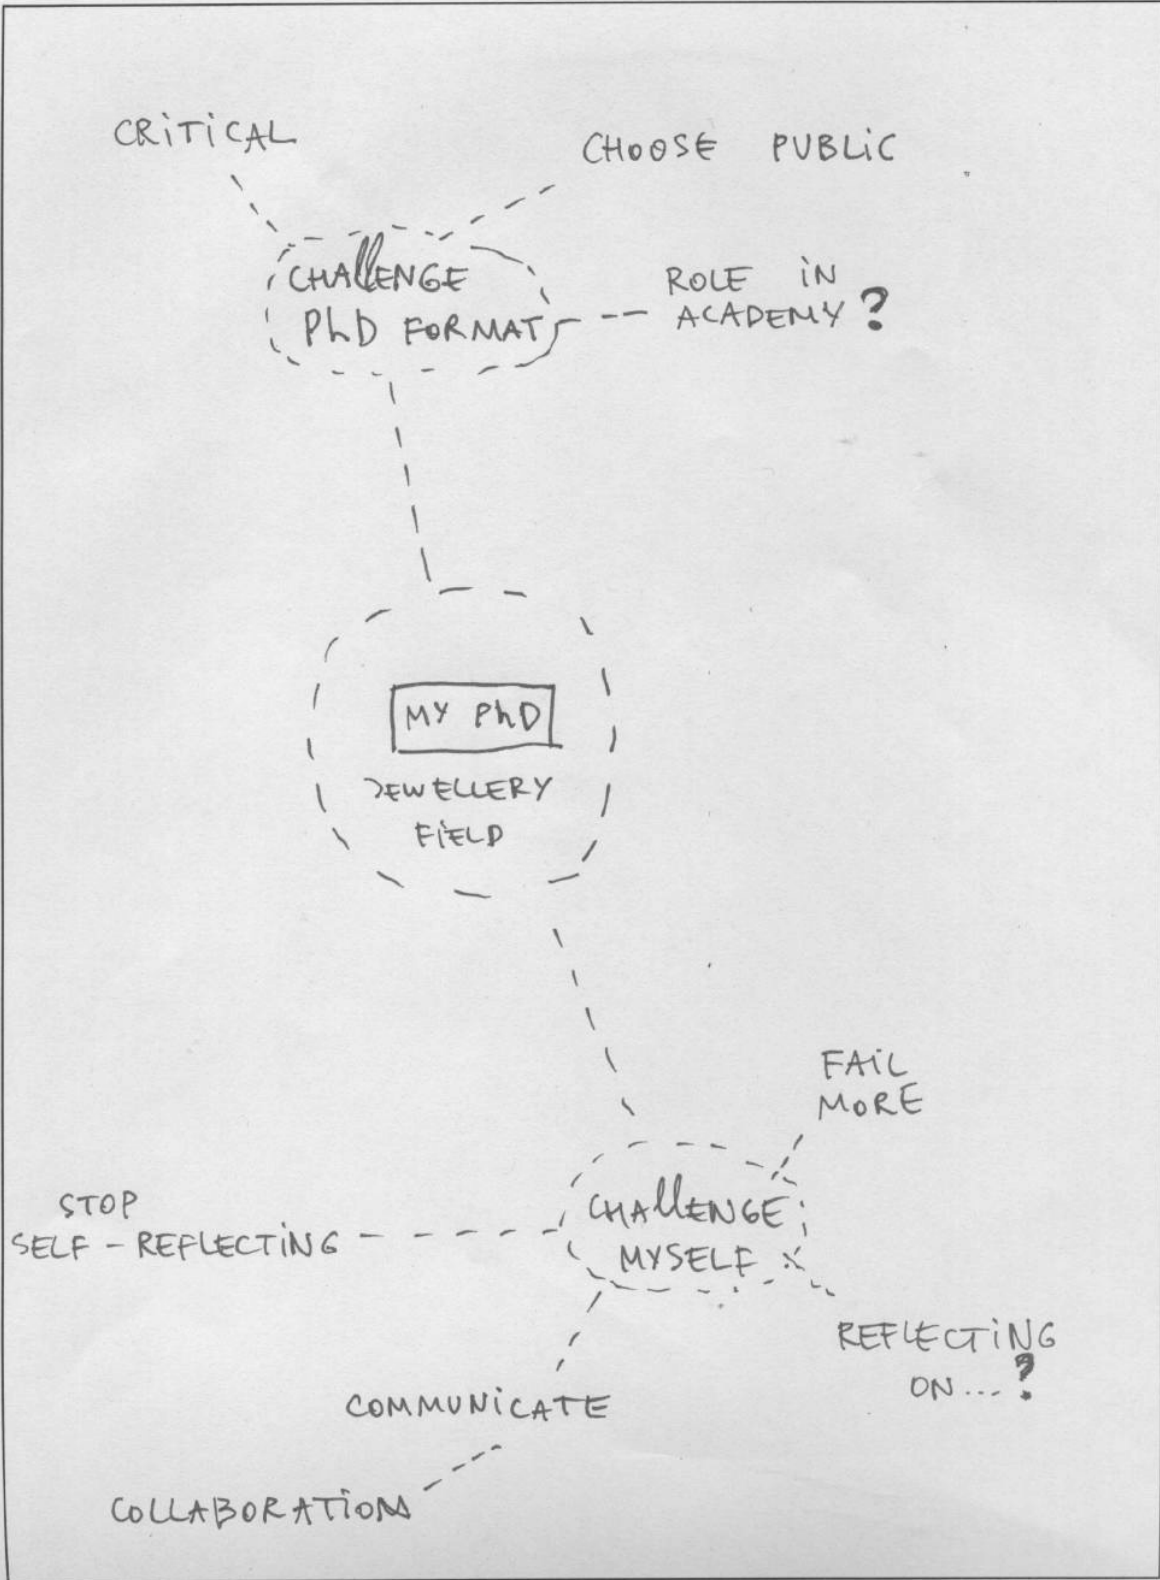 CRITICAL
CHOOSE PUBLIC
CHALLENGE
PhD FORMAT
ROLE IN
ACADEMY ?
MY PhD
JEWELLERY
FIELD
FAIL
MORE
STOP
SELF - REFLECTING
CHALLENGE
MYSELF
REFLECTING
ON ... ?
COMMUNICATE
COLLABORATION